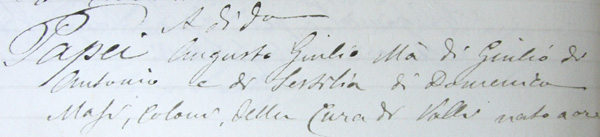 A dì do
Papei Augusto Giulio Mà di Giulio di
Antonio e di Sestilia di Domenico
Masi, Coloni, della Cura di Valli nato a ore